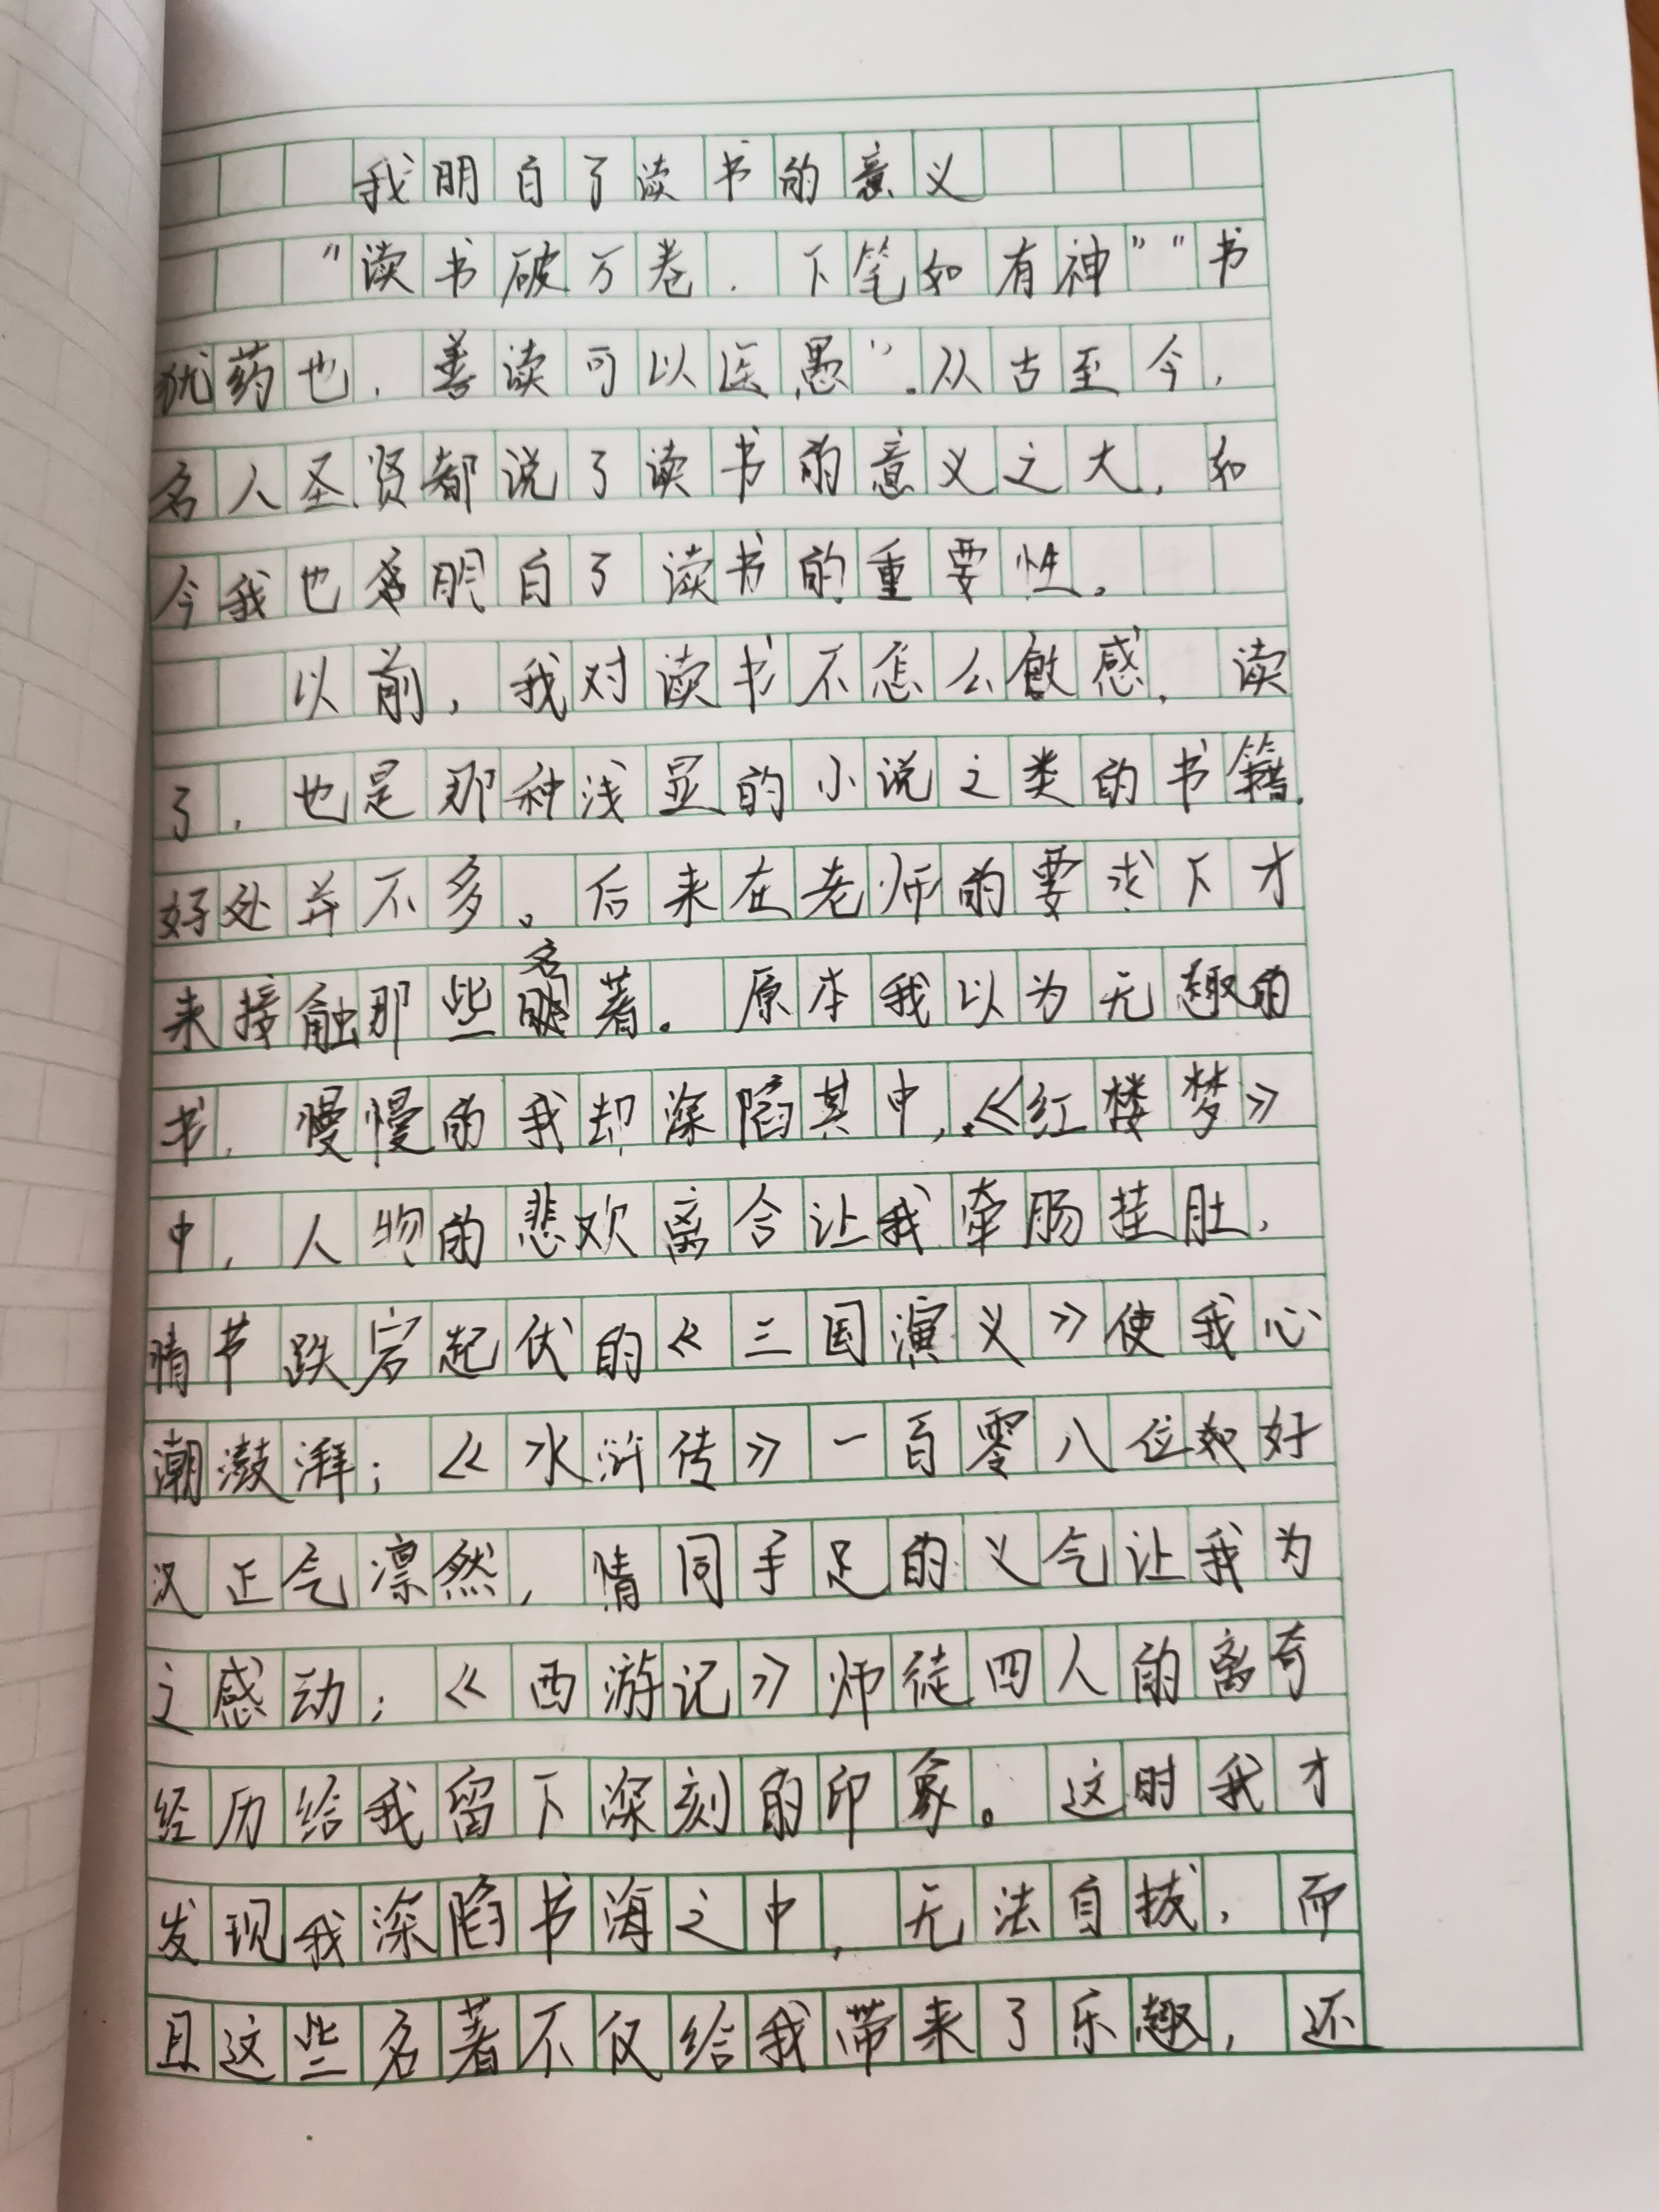 我明白了读书的意义
“读书破万卷,下笔如有神”“书
犹药也,善读可以医愚”。从古至今,
名人圣贤都说了读书的意义之大,如
今我也明白了读书的重要性。
以前,我对读书不怎么敏感,读
了,也是那种浅显的小说之类的书籍,
好处并不多。后来在老师的要求下才
来接触那些名著。原本我以为无趣的
书,慢慢的我却深陷其中,《红楼梦》
中,人物的悲欢离合让我牵肠挂肚,
情节跌宕起伏的《三国演义》使我心
潮澎湃;《水浒传》一百零八位好
汉正气凛然,情同手足的义气让我为
之感动;《西游记》师徒四人的离奇
经历给我留下深刻的印象。这时我才
发现我深陷书海之中,无法自拔,而
且这些名著不仅给我带来了乐趣,还